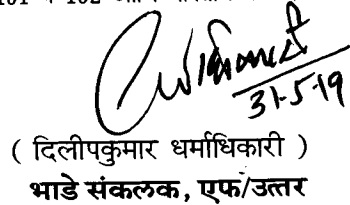 31-5-19
( दिलीपकुमार धर्माधिकारी )
भाडे संकलक, एफ/उत्तर